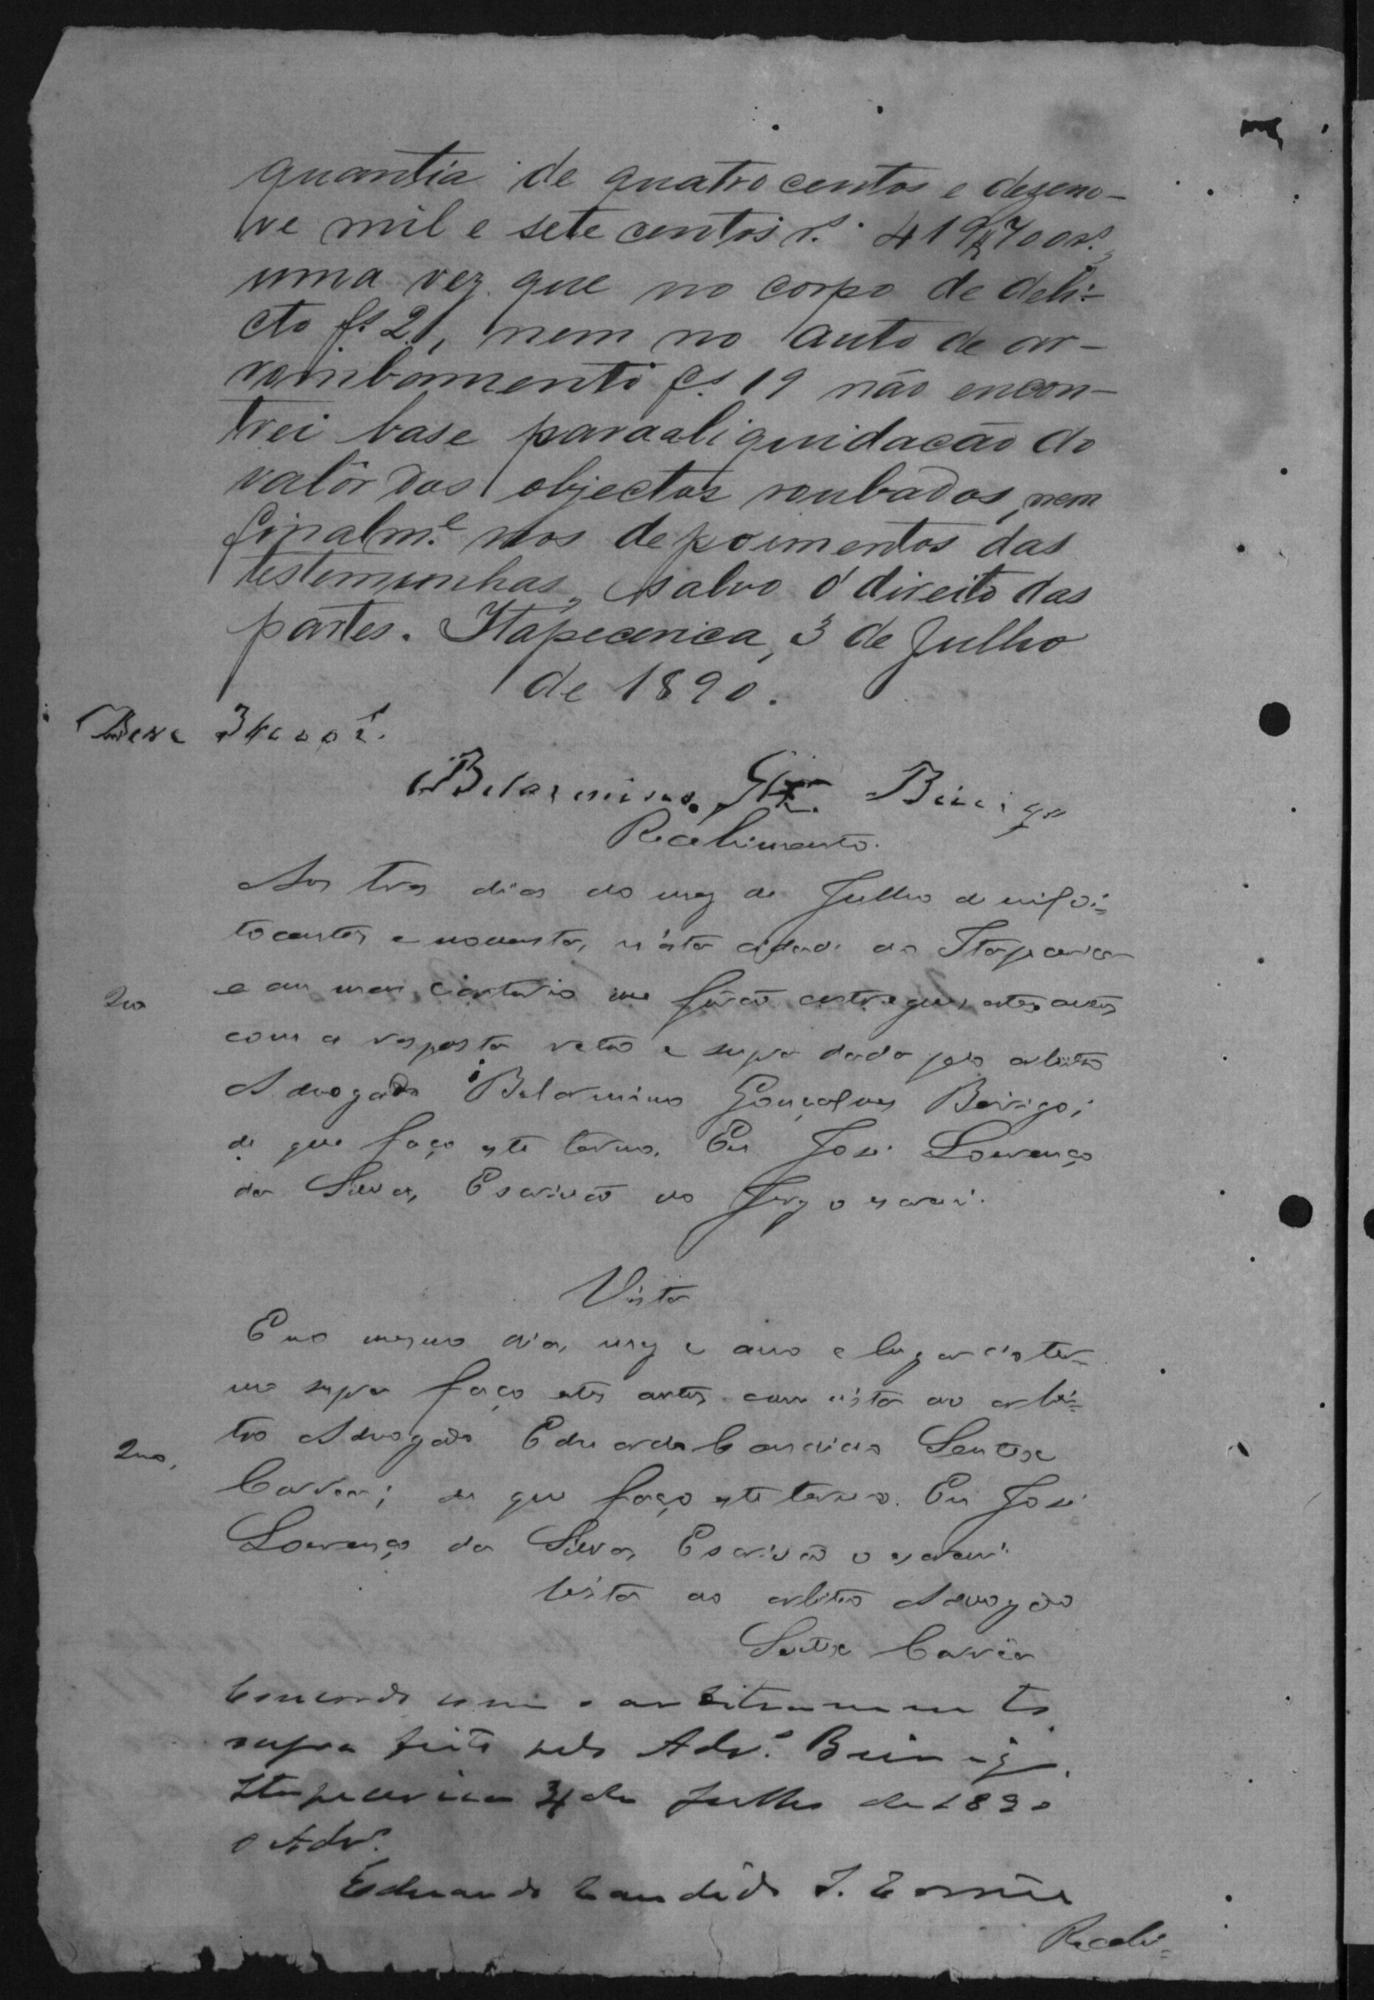 quantia de quatro centos e dezeno-
ve mil e sete centos r.s 419$700 r.s,
uma vez que no corpo de deli-
cto fs 21, nem no auto de ar-
rombamento fs 19 não encon-
trei base para a liquidacão do
valôr dos objectos roubados, nem
finalm.e nos depoimentos das
testemunhas, salvo o direito das
partes. Itapecerica, 3 de Julho
de 1890.
Deve 3$000 r.
Belarmino Glz. Beirigo
Recebimento.
Aos tres dias do mez de Julho de mil oi-
tocentos e noventa, n'esta cidade de Itapecerica
e em meu cartorio me fôrão entregues estes autos
com a resposta retro e supra dada pelo arbitro
Advogado Belarmino Gonçalves Beirigo;
de que faço este termo. Eu José Lourenço
da Silva, Escrivão do Jury o escrevi.
200
Vista
E no mesmo dia, mez e anno e lugar do ter-
mo supra faço estes autos com vista ao arbi-
tro Advogado Eduardo Candido Sentse
Corrêa; de que faço este termo. Eu José
Lourenço da Silva, Escrivão o escrevi.
200,
Vista ao arbitro Advogado
Corrêa
Concordo com o arbitramento
supra feito pelo Adv.o Beirigo.
Itapecerica 4 de Julho de 1890
o Adv.o
Eduardo Candido S. Corrêa
Recebi-